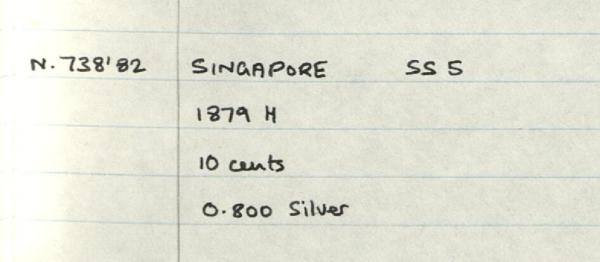 N. 738'82 SINGAPORE SS 5
1879 H
10 cents
0.800 Silver